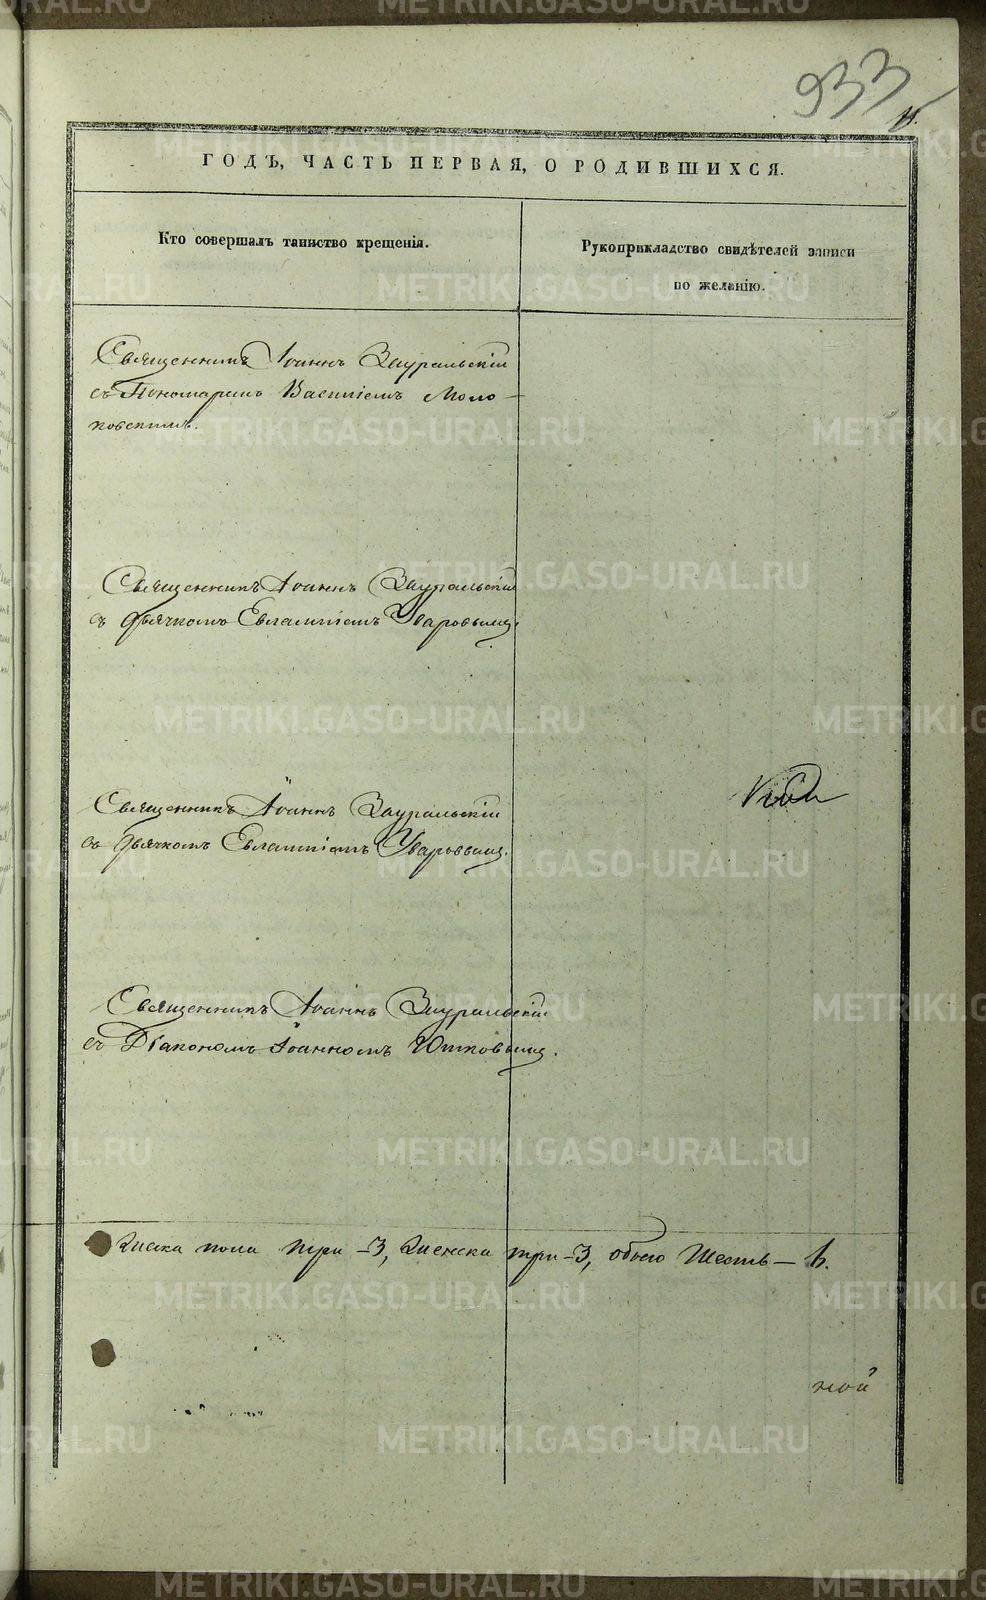 933
ГОДЪ, ЧАСТЬ ПЕРВАЯ, О РОДИВШИХСЯ.
Кто совершалъ таинство крещенія.
Рукоприкладство свидѣтелей записи
по желанію.
Священникъ Іоаннъ Зауральскій
съ Пономаремъ Василіемъ Моло-
ковскимъ.
Священникъ Іоаннъ Зауральскій
съ дьячкомъ Евлампіемъ Уваровымъ.
Священникъ Іоаннъ Зауральскій
съ дьячкомъ Евлампіемъ Уваровымъ.
Священникъ Іоаннъ Зауральскій
съ Діакономъ Іоанномъ Ютковымъ.
пола три -3, Женска три -3, обоего Шесть - 6.
ной
METRIKI.GASO-URAL.RU